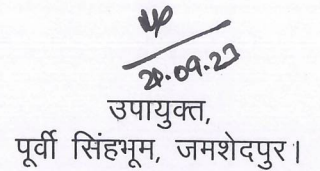 20.09.23
उपायुक्त,
पूर्वी सिंहभूम, जमशेदपुर।